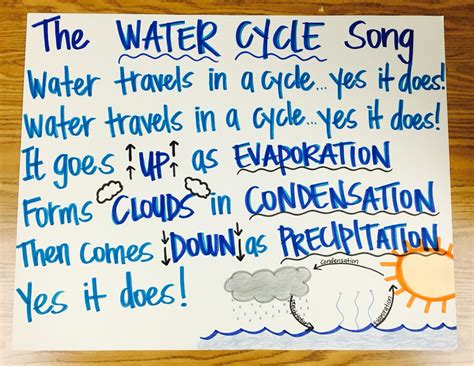 The WATER CYCLE Song
Water travels in a cycle...yes it does!
Water travels in a cycle...yes it does!
It goes ↑UP↑ as EVAPORATION
Forms CLOUDS in CONDENSATION
Then comes ↓DOWN↓ as PRECIPITATION
Yes it does!
condensation
evaporation